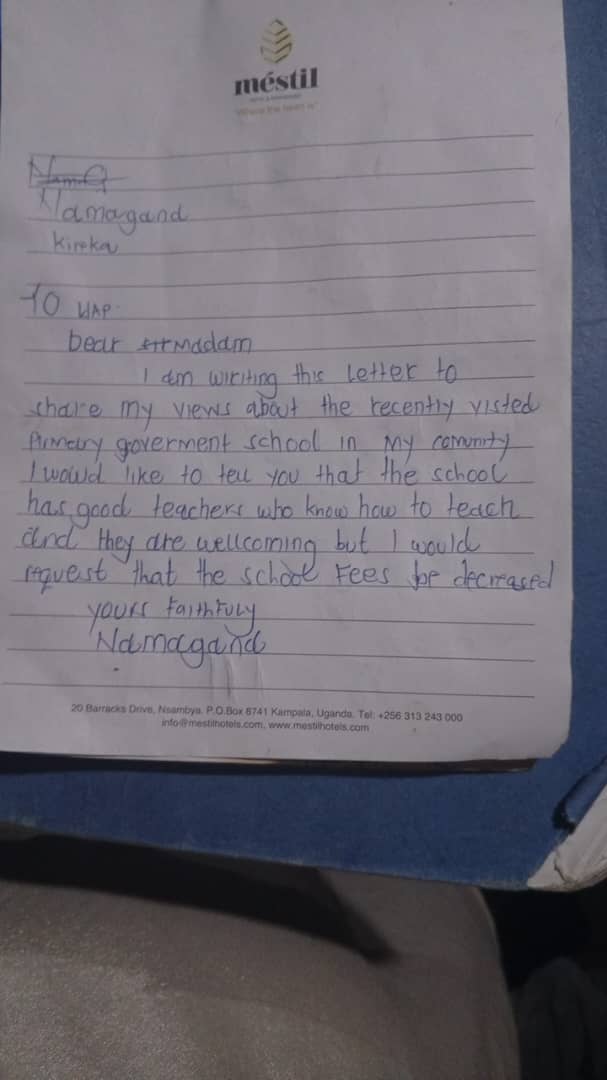 méstil
"Where the heart is"
Namagand
Kireka
TO WAP.
Dear Madam
I am wiriting this Letter to
share my views about the recently visted
goverment school in my comunity
I would like to tell you that the school
has good teachers who know how to teach
and they are wellcoming but I would
request that the school Fees be decreased
yours Faithfuly
Namaganda
20 Barracks Drive, Nsambya. P.O.Box 8741 Kampala, Uganda. Tel: +256 313 243 000
info@mestilhotels.com, www.mestilhotels.com